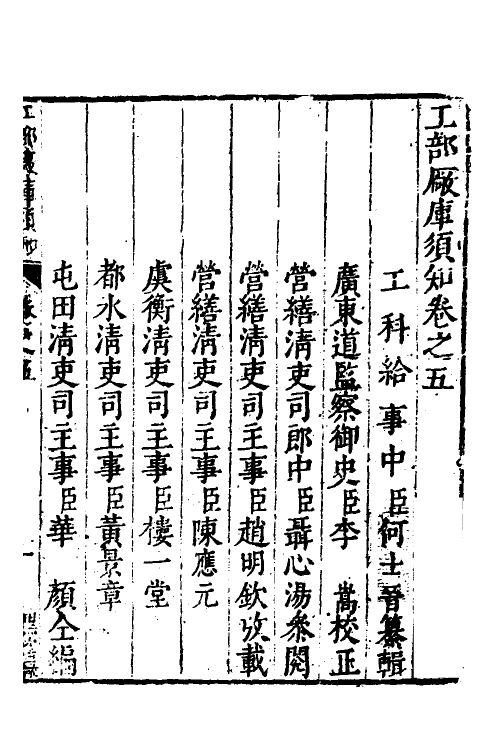 工部厰庫須知卷之五
工科給事中臣何士晉纂輯
廣東道監察御史臣李嵩校正
營繕淸吏司郎中臣聶心湯叅閱
營繕淸吏司主事臣趙明欽攷載
營繕淸吏司主事臣陳應元
虞衡淸吏司主事臣樓一堂
都水淸吏司主事臣黃景章
屯田淸吏司主事臣華顏仝編